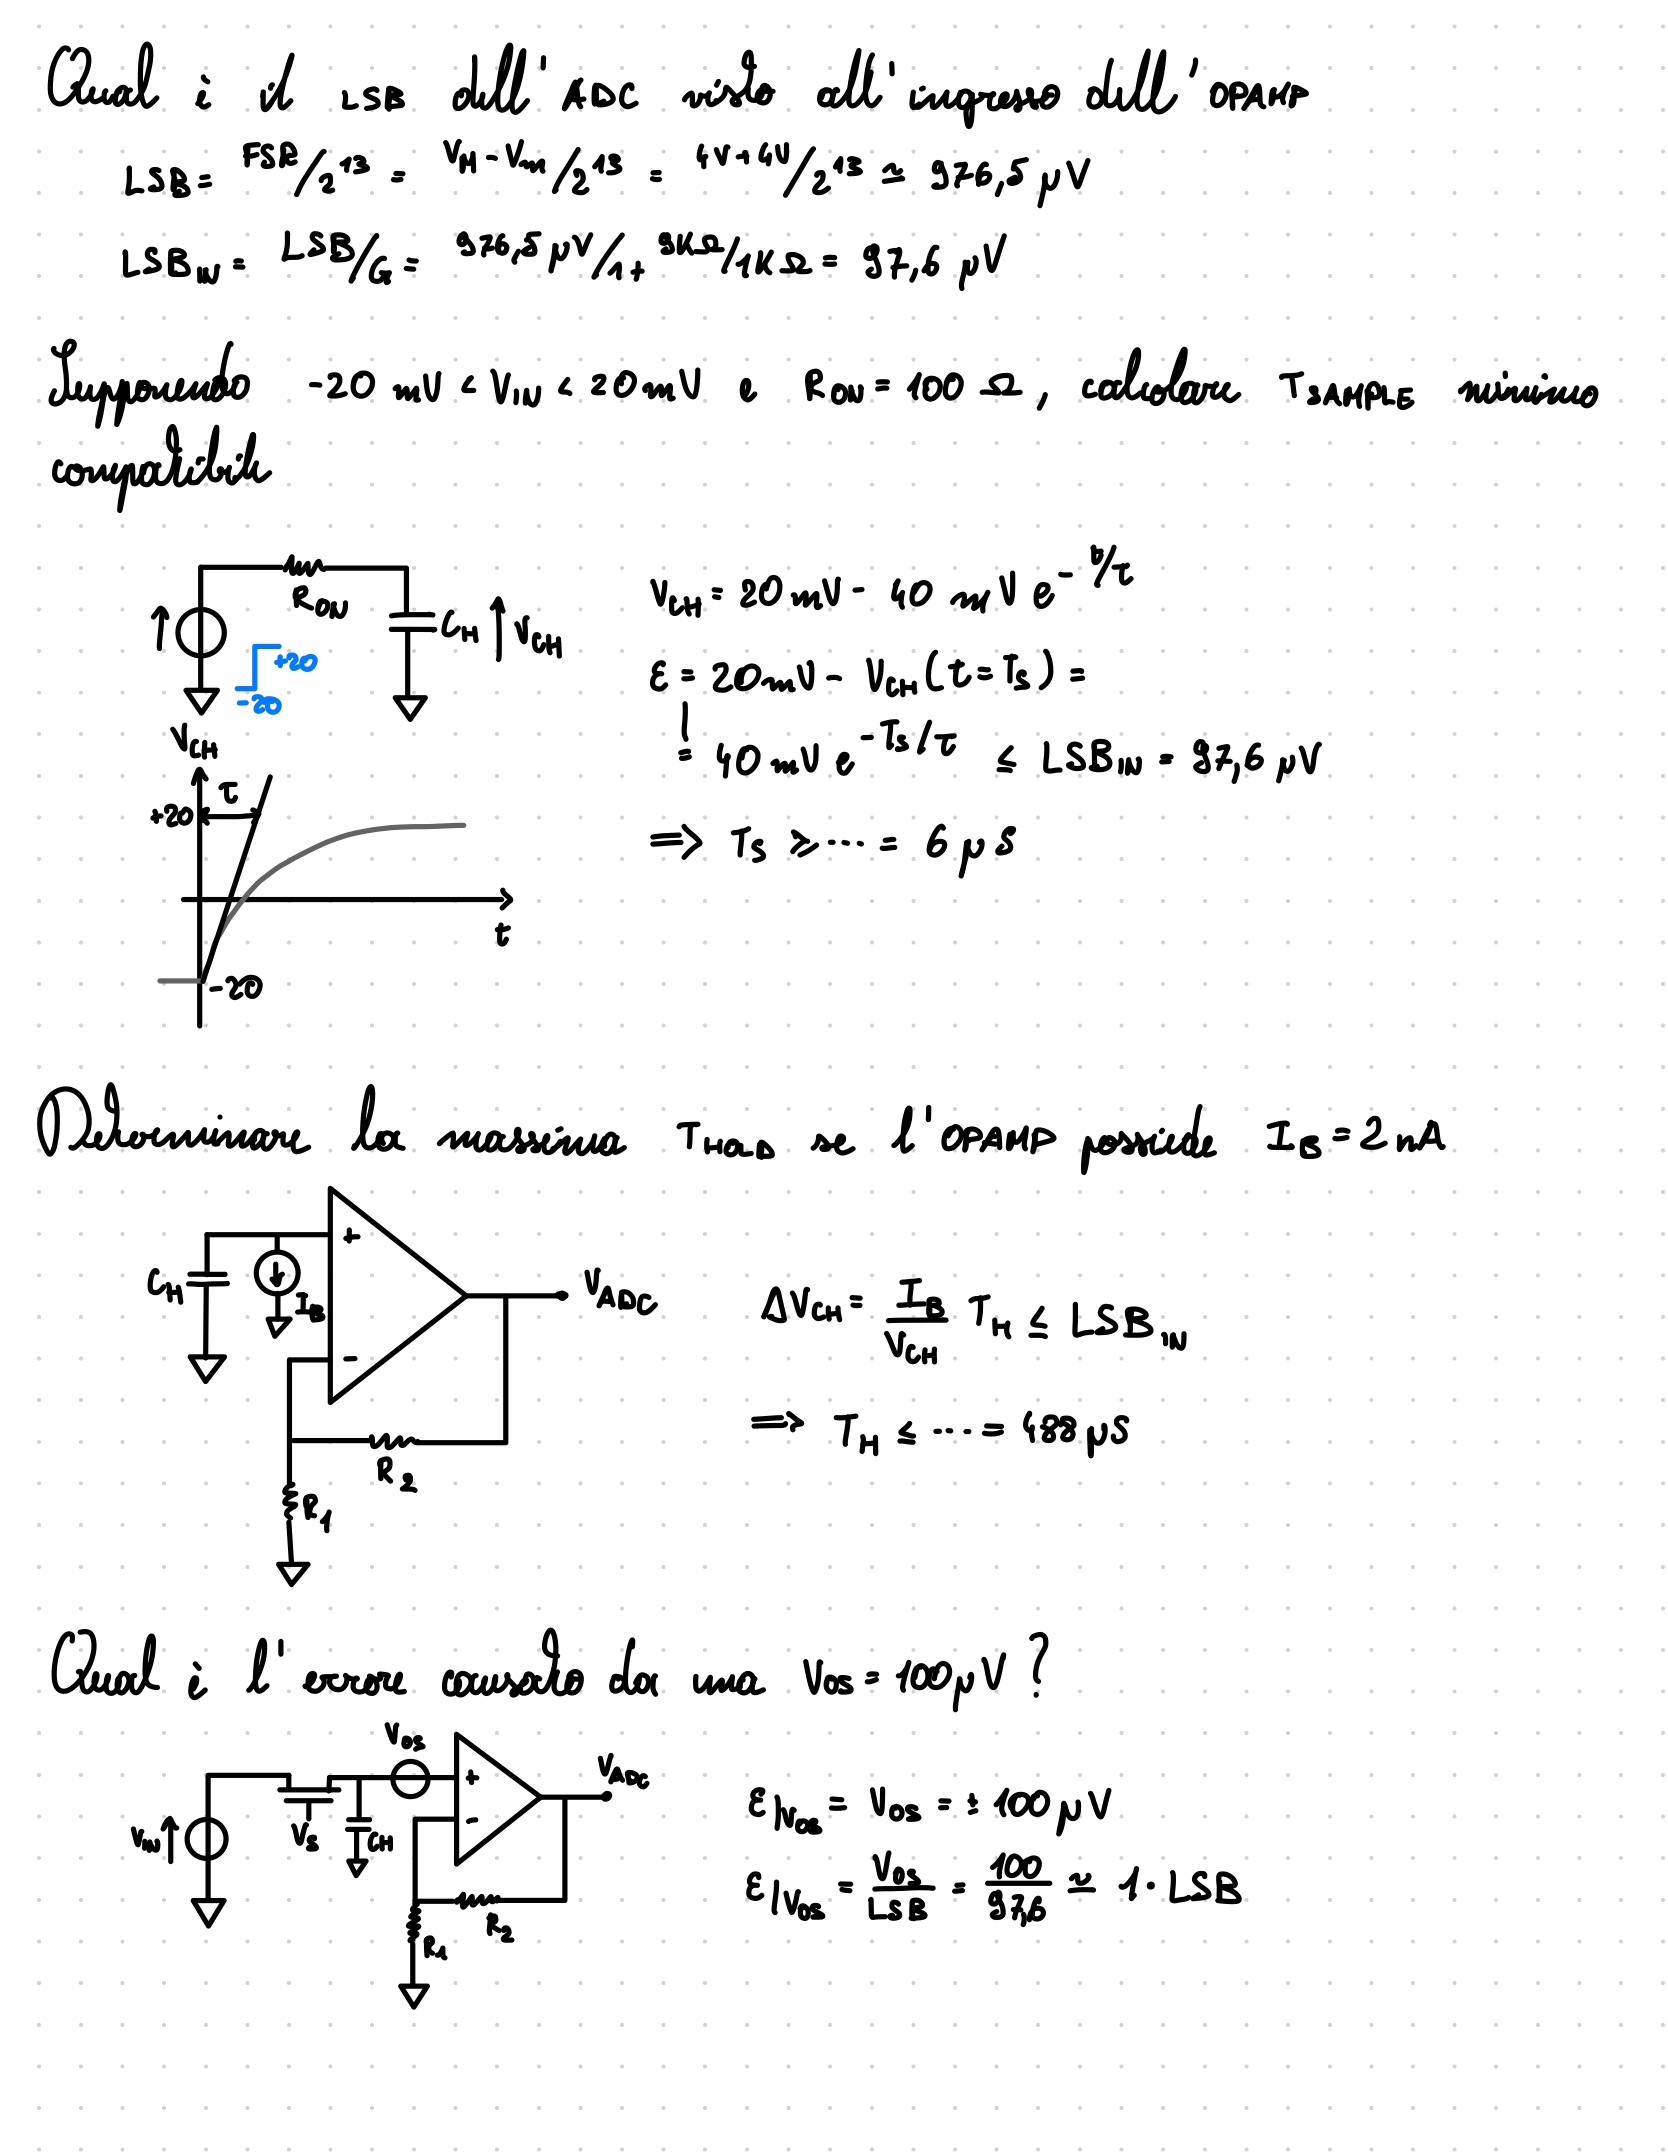 Qual è il LSB dell'ADC visto all'ingresso dell'OPAMP
LSB = FSR/2^13 = V_M - V_m/2^13 = 4V + 4V/2^13 ≃ 976,5 μV
LSB_IN = LSB/G = 976,5 μV/1 + 9KΩ/1KΩ = 97,6 μV
Supponendo -20 mV < V_IN < 20 mV e R_ON = 100 Ω, calcolare T_SAMPLE minimo
compatibile
R_ON
C_H
V_CH
+20
-20
V_CH = 20 mV - 40 mV e^-t/τ
ε = 20 mV - V_CH (t = T_S) =
= 40 mV e^-T_S/τ ≤ LSB_IN = 97,6 μV
⇒ T_S ≥ ... = 6 μS
V_CH
τ
+20
t
-20
Determinare la massima T_HOLD se l'OPAMP possiede I_B = 2 nA
+
C_H
I_B
V_ADC
-
R_2
R_1
ΔV_CH = I_B/V_CH T_H ≤ LSB_IN
⇒ T_H ≤ ... = 488 μS
Qual è l'errore causato da una V_OS = 100 μV ?
V_OS
V_ADC
+
-
V_IN
V_S
C_H
R_2
R_1
ε|V_OS = V_OS = ± 100 μV
ε|V_OS = V_OS/LSB = 100/97,6 ≃ 1 · LSB